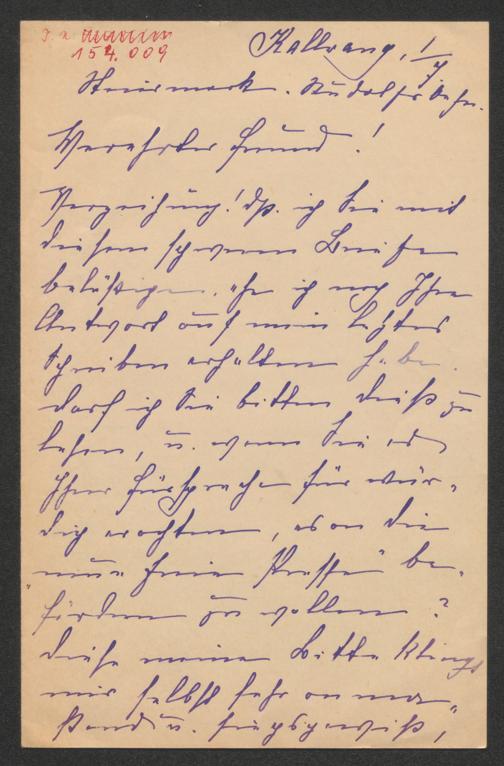 154.009
Kallwang, 1/7
Steiermark. Rudolfsbahn.
Verehrter Freund!
Verzeihung! dß. ich Sie mit
diesem schweren Briefe
belästige, ehe ich noch Ihre
Antwort auf mein letztes
Schreiben erhalten habe.
Darf ich Sie bitten dieß zu
lesen, u. wenn Sie es
Ihrer Fürsprache für wür-
dig erachten, es an die
"neue freie Presse" be-
fördern zu wollen?
Diese meine Bitte klingt
mir selbst sehr
u. siegsgewiß,